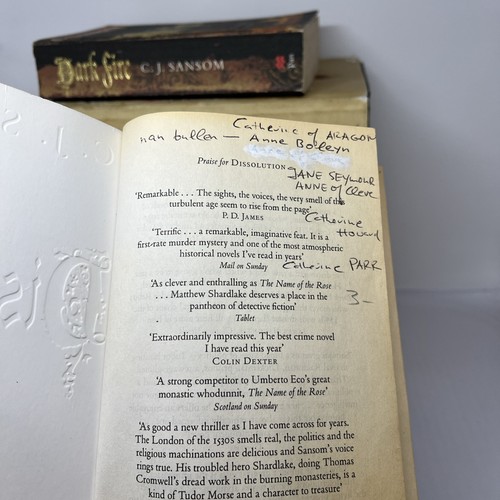 Dark Fire C. J. SANSOM
Catherine of ARAGON
nan bullen — Anne Boleyn
Praise for DISSOLUTION
JANE SEYMOUR
ANNE of Cleve
'Remarkable . . . The sights, the voices, the very smell of this
turbulent age seem to rise from the page'
P. D. JAMES
Catherine
Howard
'Terrific . . . a remarkable, imaginative feat. It is a
first-rate murder mystery and one of the most atmospheric
historical novels I've read in years'
Mail on Sunday
Catherine PARR
'As clever and enthralling as The Name of the Rose
. . . Matthew Shardlake deserves a place in the
pantheon of detective fiction'
Tablet
3-
'Extraordinarily impressive. The best crime novel
I have read this year'
COLIN DEXTER
'A strong competitor to Umberto Eco's great
monastic whodunnit, The Name of the Rose'
Scotland on Sunday
'As good a new thriller as I have come across for years.
The London of the 1530s smells real, the politics and the
religious machinations are delicious and Sansom's voice
rings true. His troubled hero Shardlake, doing Thomas
Cromwell's dread work in the burning monasteries, is a
kind of Tudor Morse and a character to treasure'
C. J. S
Dis